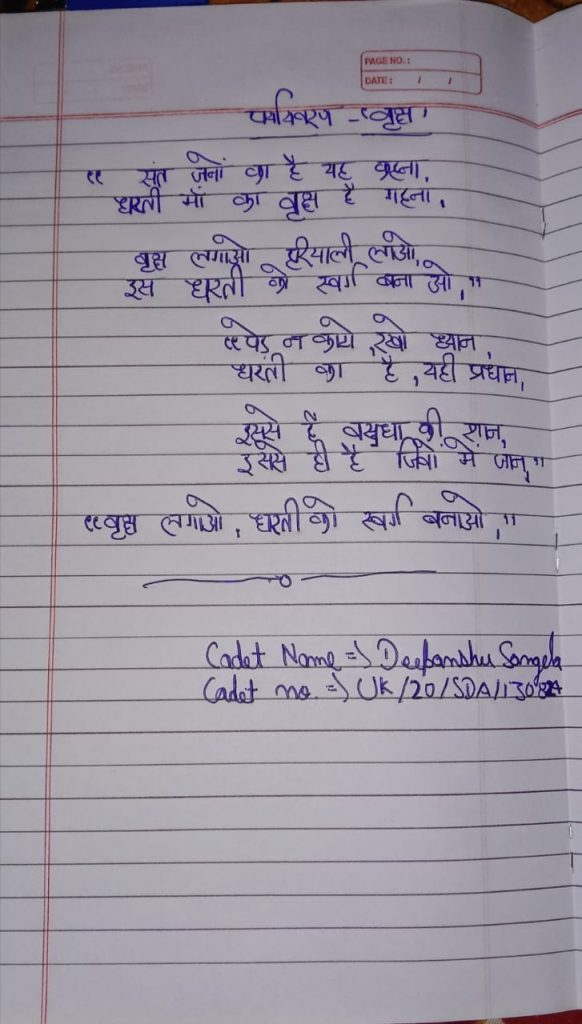 PAGE NO. :
DATE : / /
पर्यावरण - "वृक्ष'
" संत जनों का है यह कहना,
धरती माँ का वृक्ष है गहना,
वृक्ष लगाओ हरियाली लाओ,
इस धरती को स्वर्ग बनाओ,"
"पेड़ न काटो, रखो ध्यान,
धरती का है, यही प्रधान,
इससे है वसुधा की शान,
इससे ही है जिवो में जान,"
"वृक्ष लगाओ, धरती को स्वर्ग बनाओ,"
Cadet Name => Deepanshu
Cadet no. => UK/20/SDA/1308